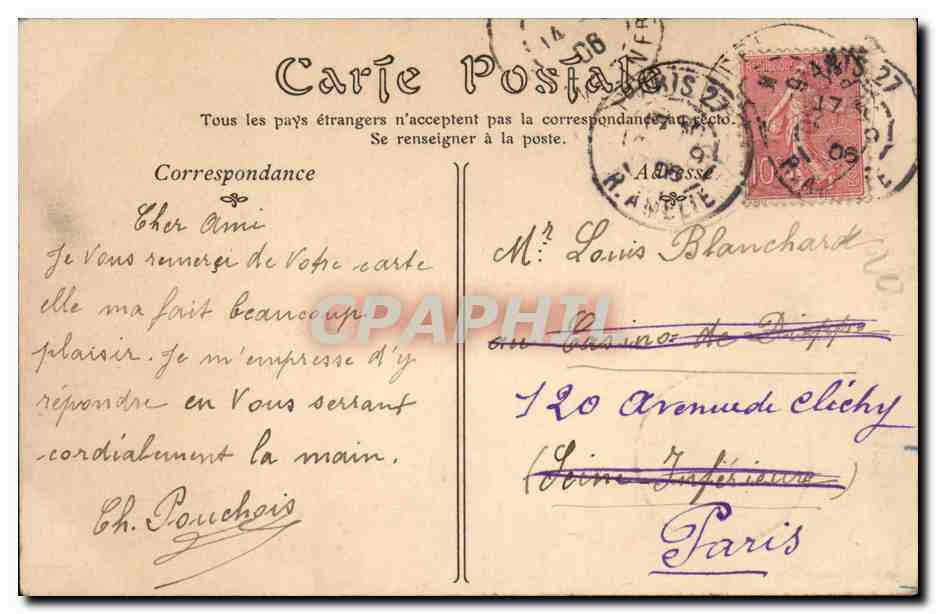 Carte Postale
Tous les pays étrangers n'acceptent pas la correspondance au recto.
Se renseigner à la poste.
Correspondance
Cher Ami
Je vous remerçi de votre carte
elle ma fait beaucoup
plaisir. Je m'empresse d'y
répondre en vous serrant
cordialement la main.
Ch. Pouchois
Adresse
Mr. Louis Blanchard
au Casino de Dieppe
120 Avenue de Clichy
(Seine Inférieure)
Paris
PARIS 27
R. AMELIE
06
PARIS 27
06
10
14
06
20
CPAPHTI